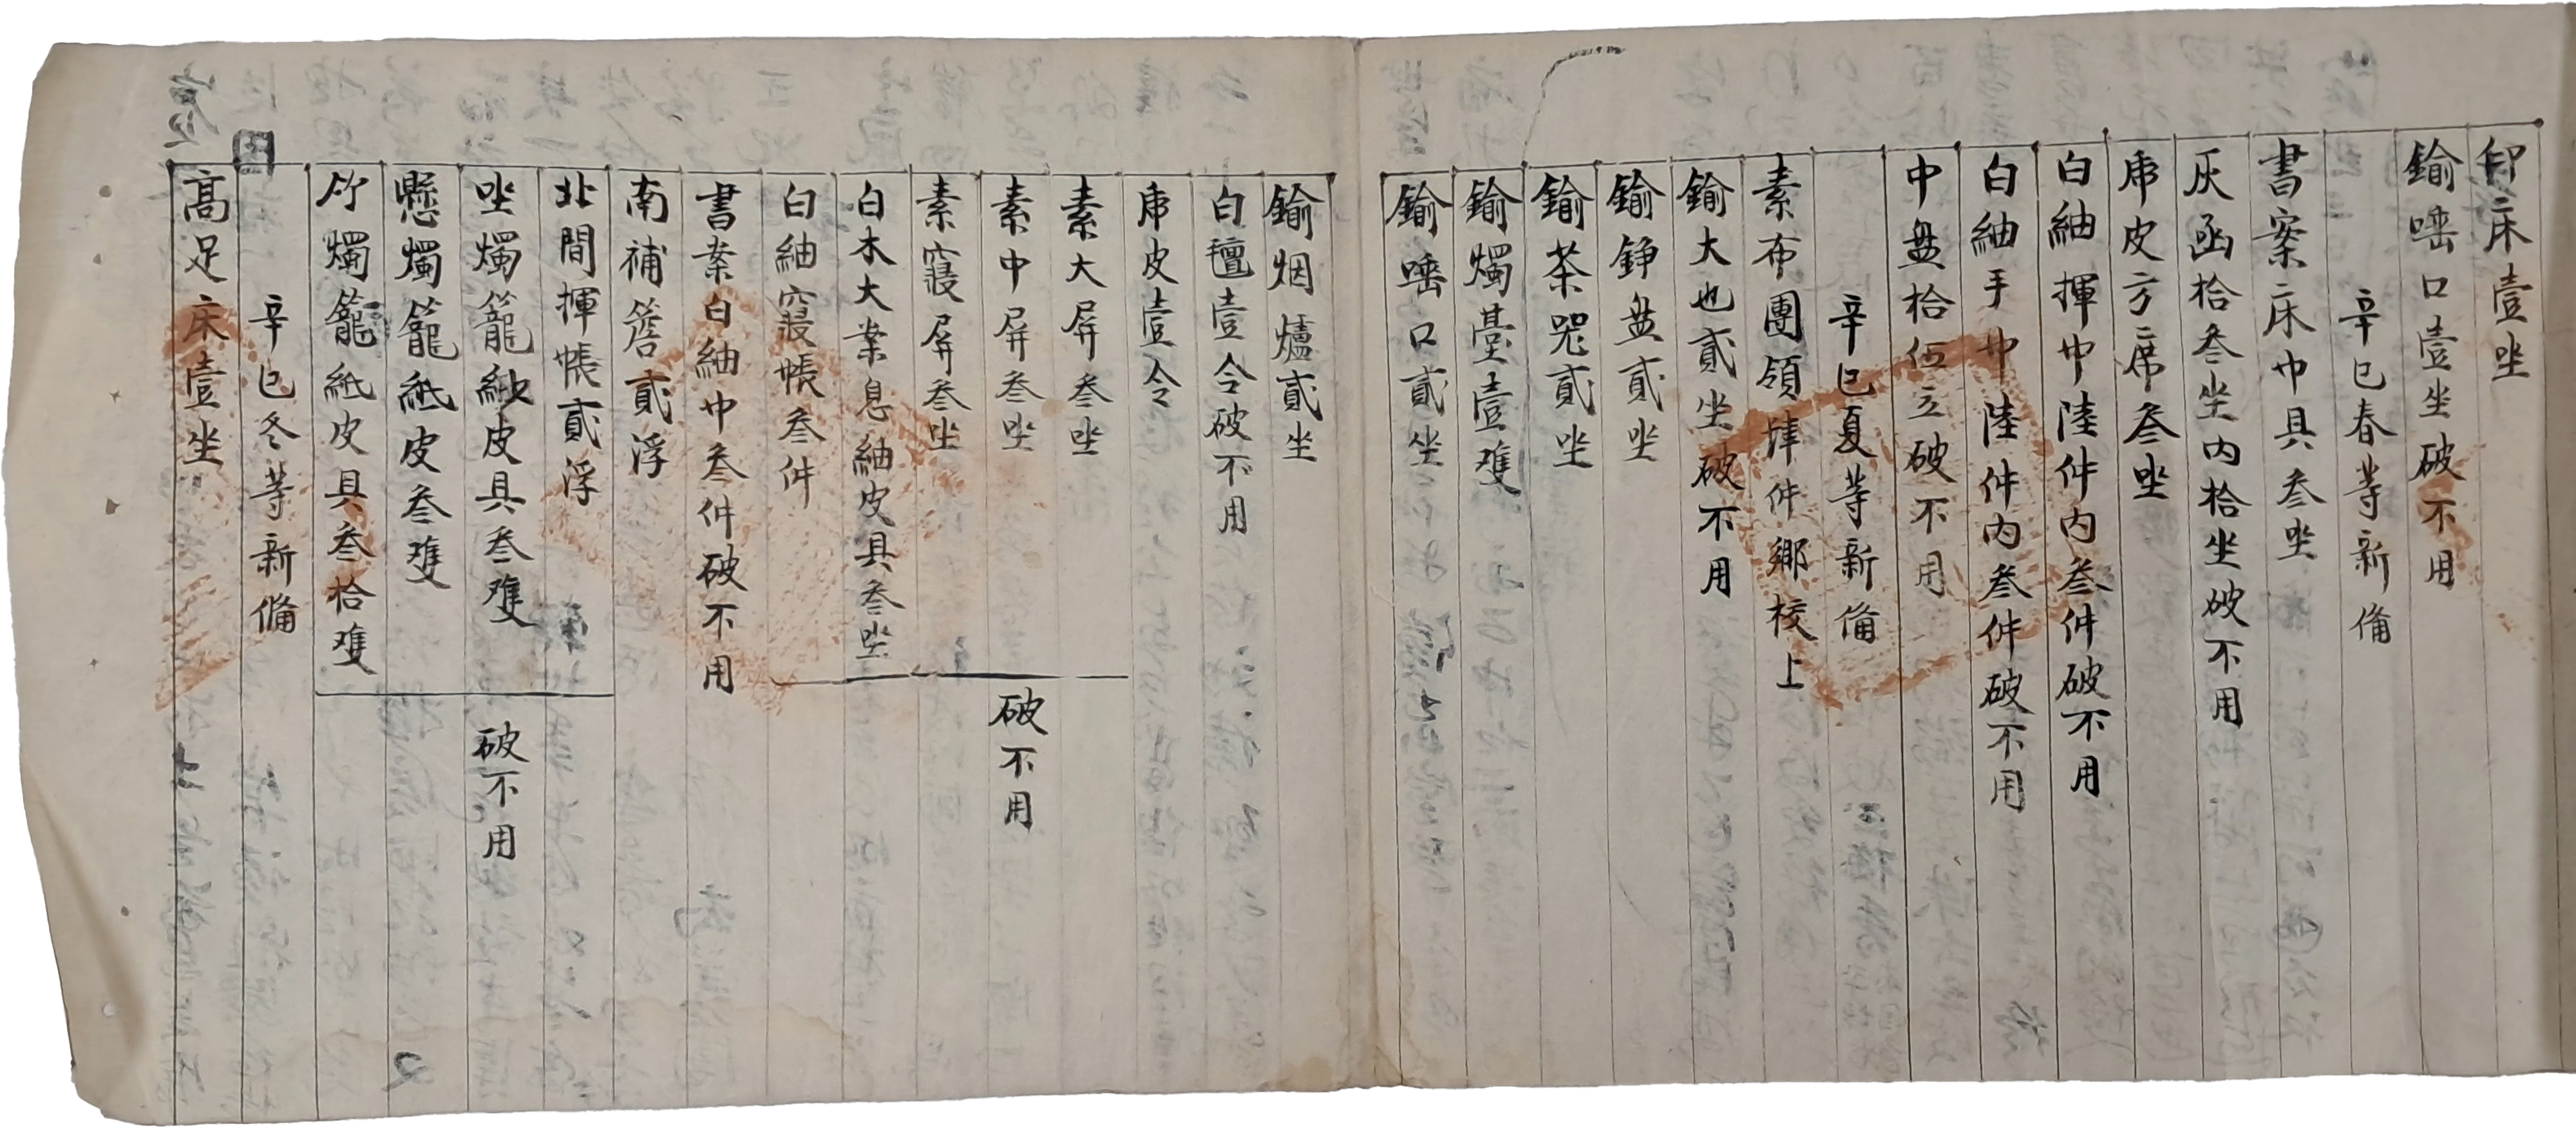 印床壹坐
鍮唾口壹坐破不用
辛巳春等新備
書案床巾具叁坐
灰函拾叁坐内拾坐破不用
乕皮方席叁坐
白紬揮巾陸件内叁件破不用
白紬手巾陸件内叁件破不用
中盘拾伍立破不用
辛巳夏等新備
素布團領肆件鄕校上
鍮大也貳坐破不用
鍮錚盘貳坐
鍮茶兕貳坐
鍮燭臺壹䨇
鍮唾口貳坐
鍮烟爐貳坐
白氊壹令破不用
乕皮壹令
素大屛叁坐
素中屛叁坐
破不用
素寢屛叁坐
白木大案息紬皮具叁坐
白紬寢帳叁件
書案白紬巾叁件破不用
南補簷貳浮
北間揮帳貳浮
坐燭籠紗皮具叁䨇
破不用
懸燭籠紙皮叁䨇
竹燭籠紙皮具叁拾䨇
辛巳冬等新備
高足床壹坐